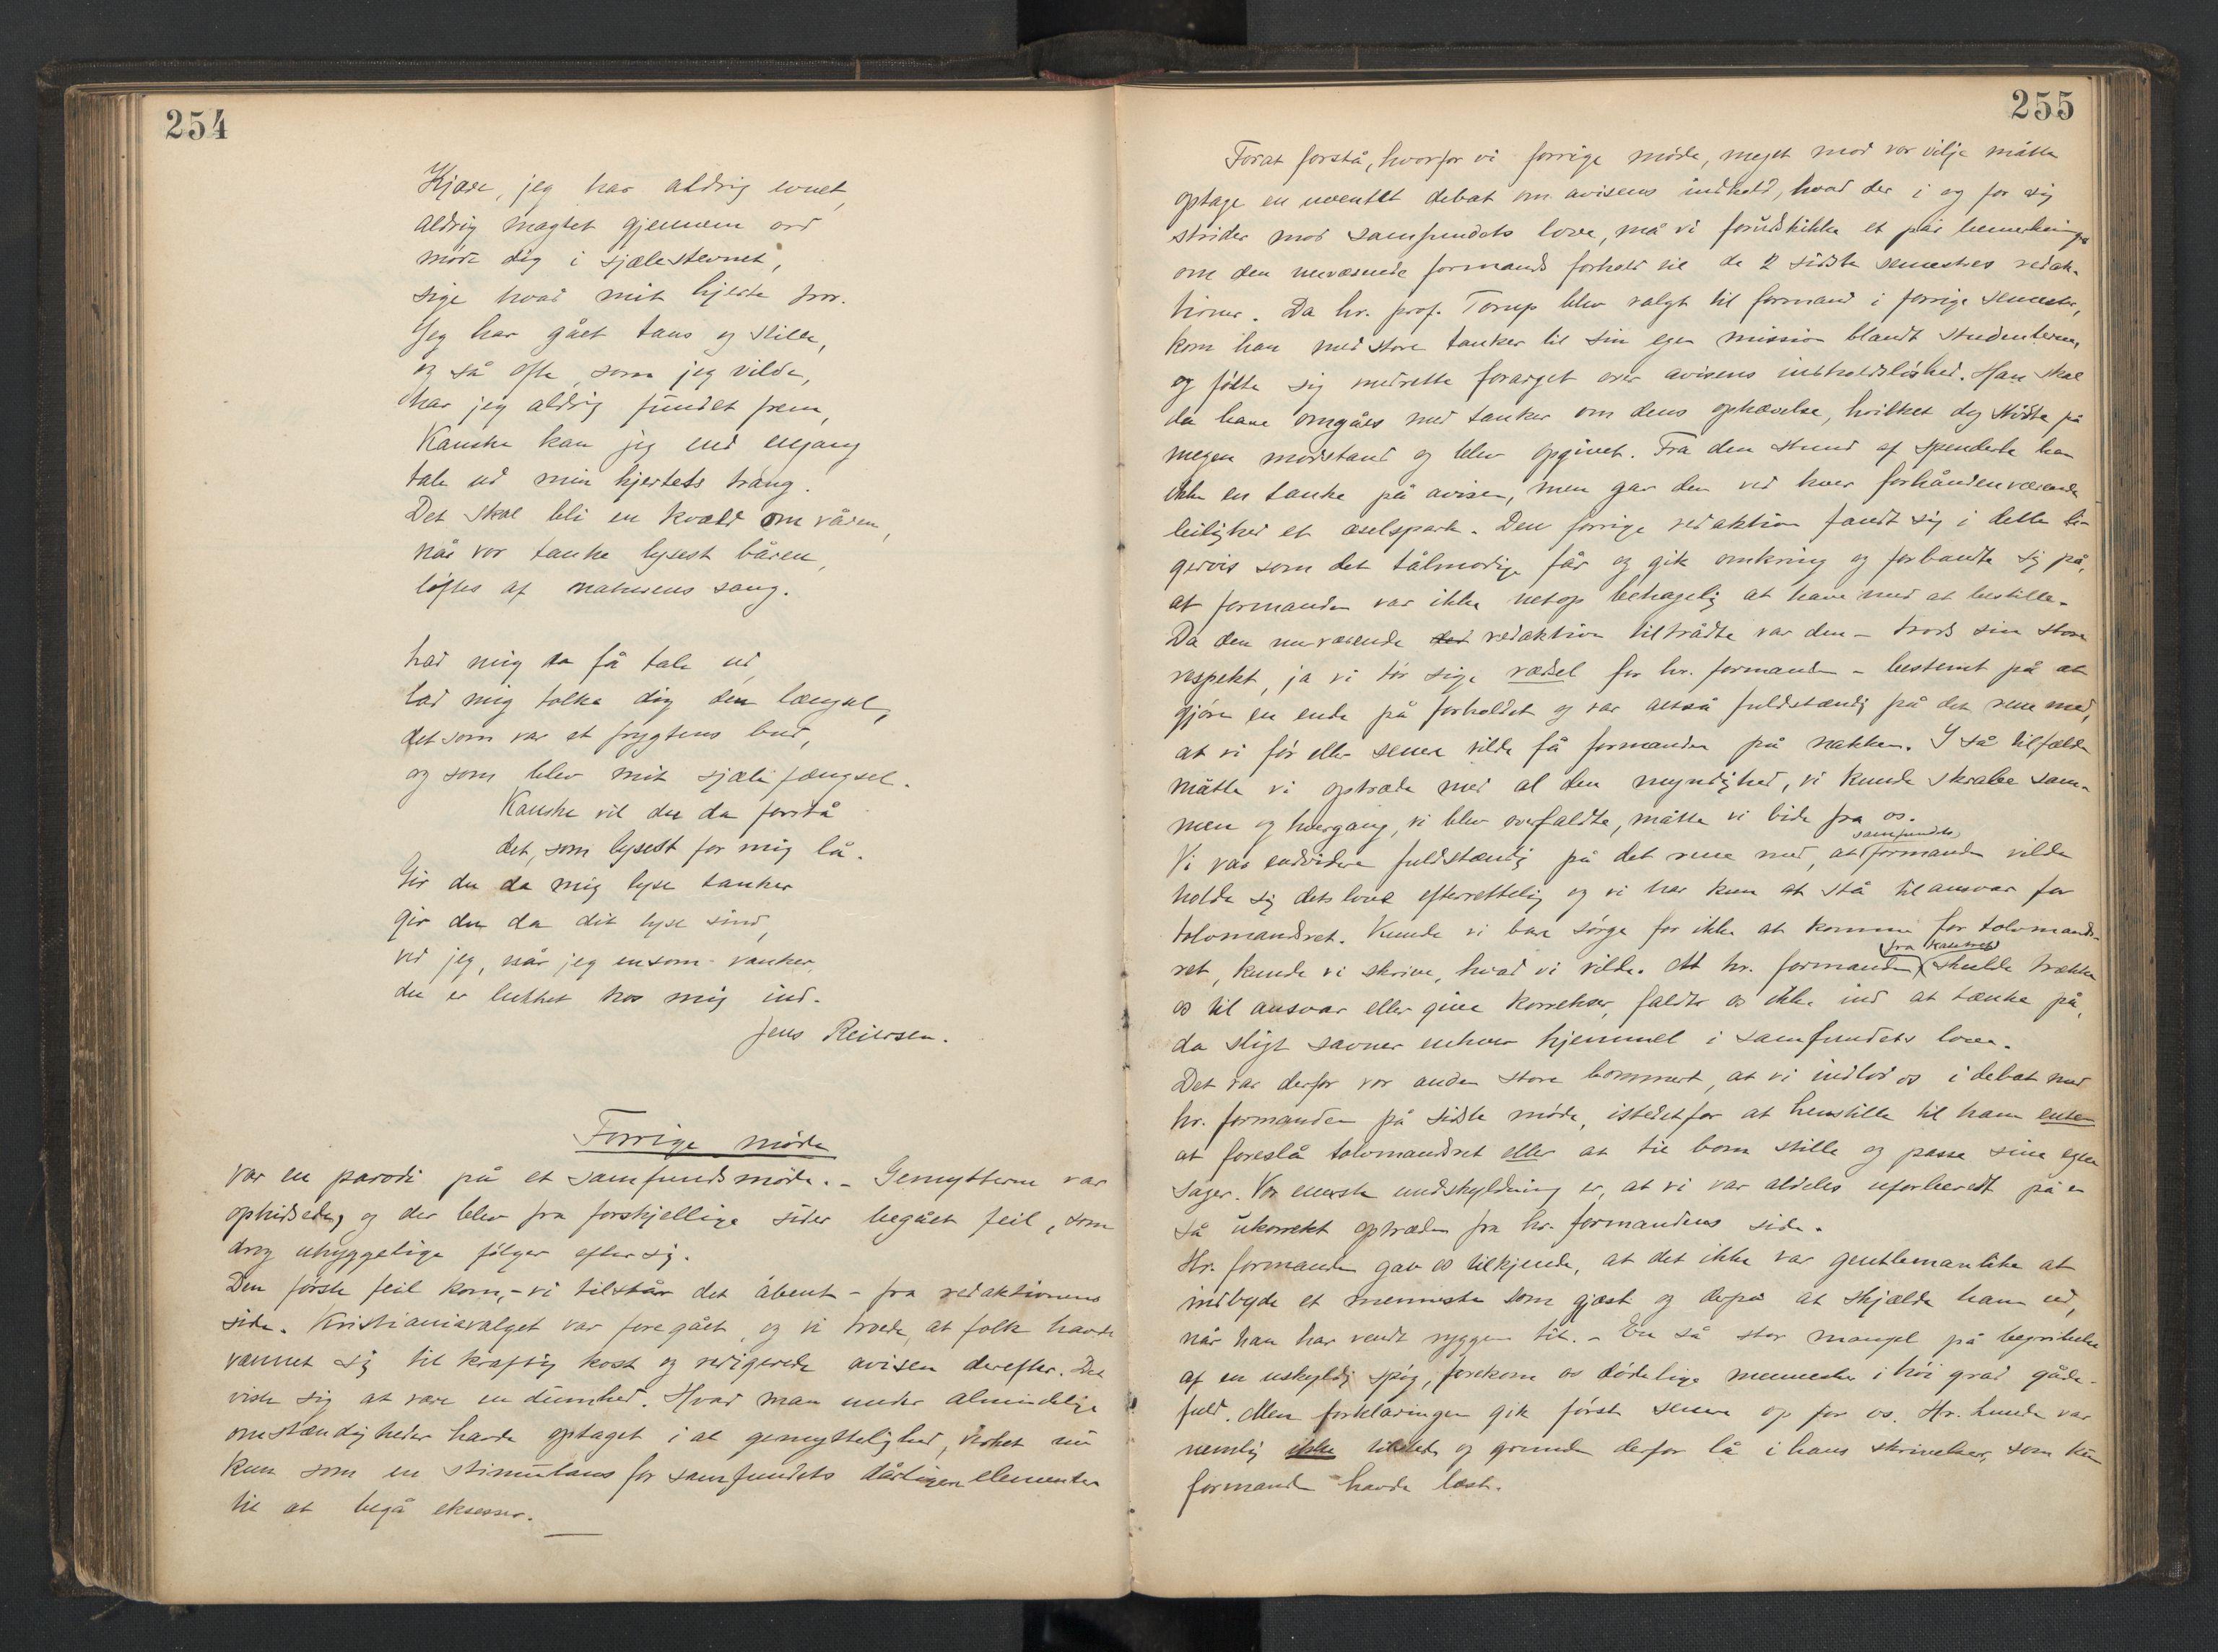 254
Kjære, jeg har aldrig evnet,
aldrig magtet gjennem ord
møde dig i sjælestevnet,
sige hvad mit hjerte tror.
Jeg har gået taus og stille,
og så ofte, som jeg vilde,
har jeg aldrig fundet frem,
Kanske kan jeg end engang
tale ud min hjertets trang.
Det skal bli en kvæld om våren,
når vor tanke lysest båren,
løftes af naturens sang.
Lad mig da få tale ud,
lad mig tolke dig den længsel,
det som var et frygtens bud,
og som blev mit sjælefængsel.
Kanske vil du da forstå
det, som lysest for mig lå.
Gir du da mig lyse tanker
gir du da dit lyse sind,
ved jeg, når jeg ensom vanker,
du er lukket hos mig ind.
Jens Reiersen.
Forrige møde
var en parodi på et samfundsmøde. - Gemytterne var
ophidsede, og der blev fra forskjellige sider begået feil, som
drog uhyggelige følger efter sig.
Den første feil kom, - vi tilstår det åbent - fra redaktionens
side. Kristianiavalget var foregået, og vi troede, at folk havde
vænnet sig til kraftig kost og redigerede avisen derefter. Det
viste sig at være en dumhed. Hvad man under almindelige
omstændigheder havde optaget i al gemyttelighed, virket nu
kun som en stimulans for samfundets dårligere elementer
til at begå eksesser.
255
Forat forstå, hvorfor vi forrige møde, meget mod vor vilje måtte
optage en uventet debat om avisens indhold, hvad der i og for sig
strider mod samfundets love, må vi forudskikke et par bemerkninger
om den nuværende formands forhold til de 2 sidste semestres redak-
tioner. Da hr. prof. Torup blev valgt til formand i forrige semester,
kom han med store tanker til sin egen mission blandt studenterne,
og følte sig medrette forarget over avisens indholdsløshed. Han skal
da have omgåes med tanker om dens ophævelse, hvilket dog stødte på
megen modstand og blev opgivet. Fra den stund af spenderte han
ikke en tanke på avisen, men gav den ved hver forhåndenværende
leilighed et æselspark. Den forrige redaktion fandt sig i dette li-
gervis som det tålmodige får og gik omkring og forbandte sig på,
at formanden var ikke netop behagelig at have med at bestille.
Da den nuværende redaktion tiltrådte var den - trods sin store
respekt, ja vi tør sige rædsel for hr. formanden - bestemt på at
gjøre en ende på forholdet og var altså fuldstændig på det rene med,
at vi før eller senere vilde få formanden på nakken. I så tilfælde
måtte vi optræde med al den myndighed, vi kunde skrabe sam-
men og hvergang, vi blev overfaldte, måtte vi bide fra os.
Vi var endvidere fuldstændig på det rene med, at samfundets formand vilde
holde sig dets love efterrettelig og vi har kun at stå til ansvar for
tolvmandsret. Kunde vi bare sørge for ikke at komme for tolvmands-
ret, kunde vi skrive, hvad vi vilde. At hr. formanden fra kathedret skulde trække
os til ansvar eller give korrekser, faldt os ikke ind at tænke på,
da sligt savner enhver hjemmel i samfundets love.
Det var derfor vor anden store bommert, at vi indlod os i debat med
hr. formanden på sidste møde, istedetfor at henstille til ham enten
at foreslå tolvmandsret eller at tie bom stille og passe sine egne
sager. Vor eneste undskyldning er, at vi var aldeles uforberedt på en
så ukorrekt optræden fra hr. formandens side.
Hr. formanden gav os tilkjende, at det ikke var gentlemanlike at
indbyde et menneske som gjæst og derpå at skjælde ham ud,
når han har vendt ryggen til. - En så stor mangel på begribelse
af en uskyldig spøg, forekom os dødelige mennesker i høi grad gåde-
fuld. Men forklaringen gik først senere op for os. Hr. Lunde var
nemlig ikke tilstede og grunden derfor lå i hans skrivelser, som kun
formanden havde læst.